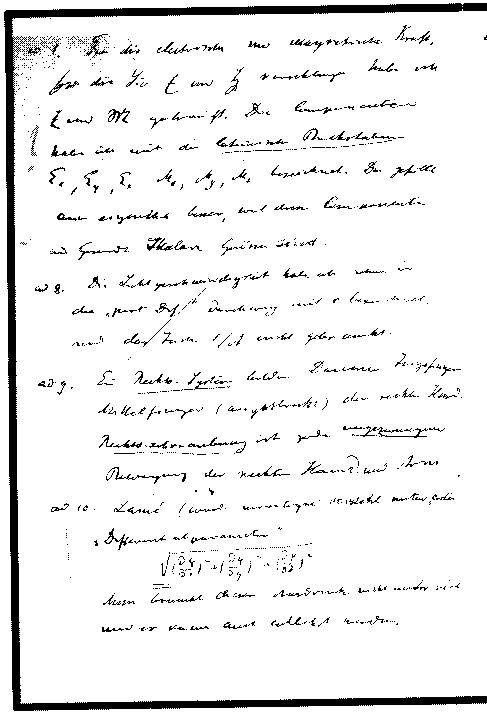 ad 7. Für die elektrische und magnetische Kraft,
für die Sie E und H vorschlagen habe ich
E und M gebraucht. Die Componenten
habe ich mit den lateinischen Buchstaben
Ex, Ey, Ez Mx, My, Mz bezeichnet. Das gefällt
mir eigentlich besser, weil diese Componenten
im Grunde Skalare Grössen sind.
ad 8. Die Lichtgeschwindigkeit habe ich schon in
den „part Diff" durchweg mit c bezeichnet
und das Zeichen nicht gebraucht.
ad 9. Ein Rechts-System bilden Daumen Zeigefinger
Mittelfinger (ausgestreckt) der rechten Hand.
Rechtsschraubung ist jede ungezwungene
Bewegung der rechten Hand und Arm
ad 10. Lamé (und) versteht unter
„Differentialparameter"
√(∂φ/∂x)² + (∂φ/∂y)² + (∂φ/∂z)²
Man braucht diesen Ausdruck nicht mehr viel
und er kann auch entbehrt werden.